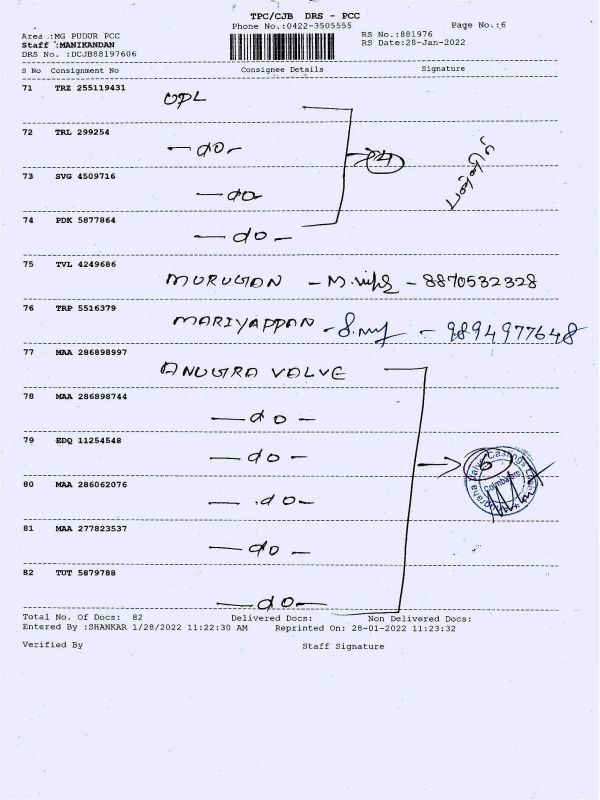 TPC/CJB DRS - PCC
Phone No.:0422-3505555
Page No.:6
Area :MG PUDUR PCC
RS No.:881976
Staff :MANIKANDAN
RS Date:28-Jan-2022
DRS No. :DCJB88197606
S No Consignment No Consignee Details Signature
71 TRZ 255119431
OPL
72 TRL 299254
— do —
4
73 SVG 4509716
— do
74 PDK 5877864
— do —
75 TVL 4249686
MURUGAN - M. - 8870532328
76 TRP 5516379
MARIYAPPAN - S. - 9894977648
77 MAA 286898997
ANUGRA VALVE
78 MAA 286898744
— do —
79 EDQ 11254548
— do —
6
80 MAA 286062076
— do —
Coimbatore
81 MAA 277823537
— do —
82 TUT 5879788
— do —
Total No. Of Docs: 82 Delivered Docs: Non Delivered Docs:
Entered By :SHANKAR 1/28/2022 11:22:30 AM Reprinted On: 28-01-2022 11:23:32
Verified By Staff Signature